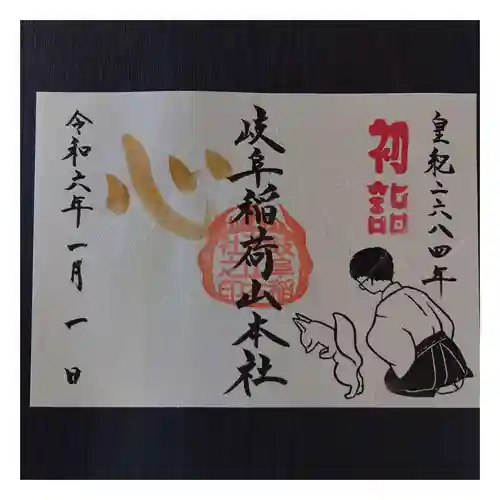 皇紀二六八四年
初詣
岐阜稲荷山本社
心
令和六年一月一日